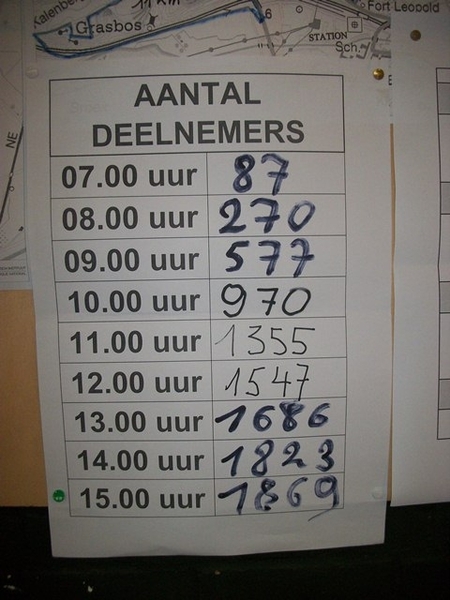 Kalenberg
11 km
Grasbos
6
Fort Leopold
STATION
Sch.
NE
AANTAL
DEELNEMERS
07.00 uur 87
08.00 uur 270
09.00 uur 577
10.00 uur 970
11.00 uur 1355
12.00 uur 1547
13.00 uur 1686
14.00 uur 1823
15.00 uur 1869